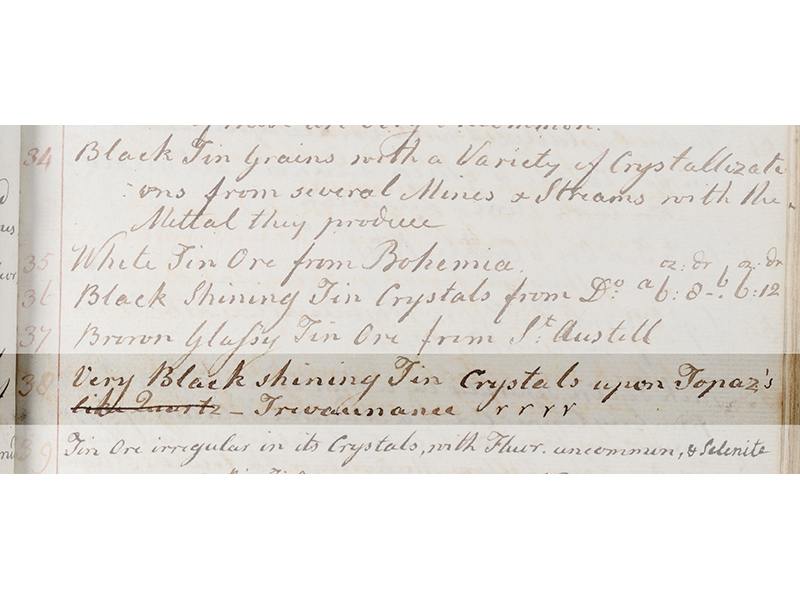 34 Black Tin Grains with a Variety of Crystallizate
ons from several Mines & Streams with the
Mettal they produce
35 White Tin Ore from Bohemia.
oz: dr oz: dr
36 Black Shining Tin Crystals from Do. a 6: 8 -. b 6: 12
37 Brown Glassy Tin Ore from St Austell
38 Very Black shining Tin Crystals upon Topaz's
like Quartz - Trevaunance r r r r
39 Tin Ore irregular in its Crystals, with Fluor. uncommon, & Selenite